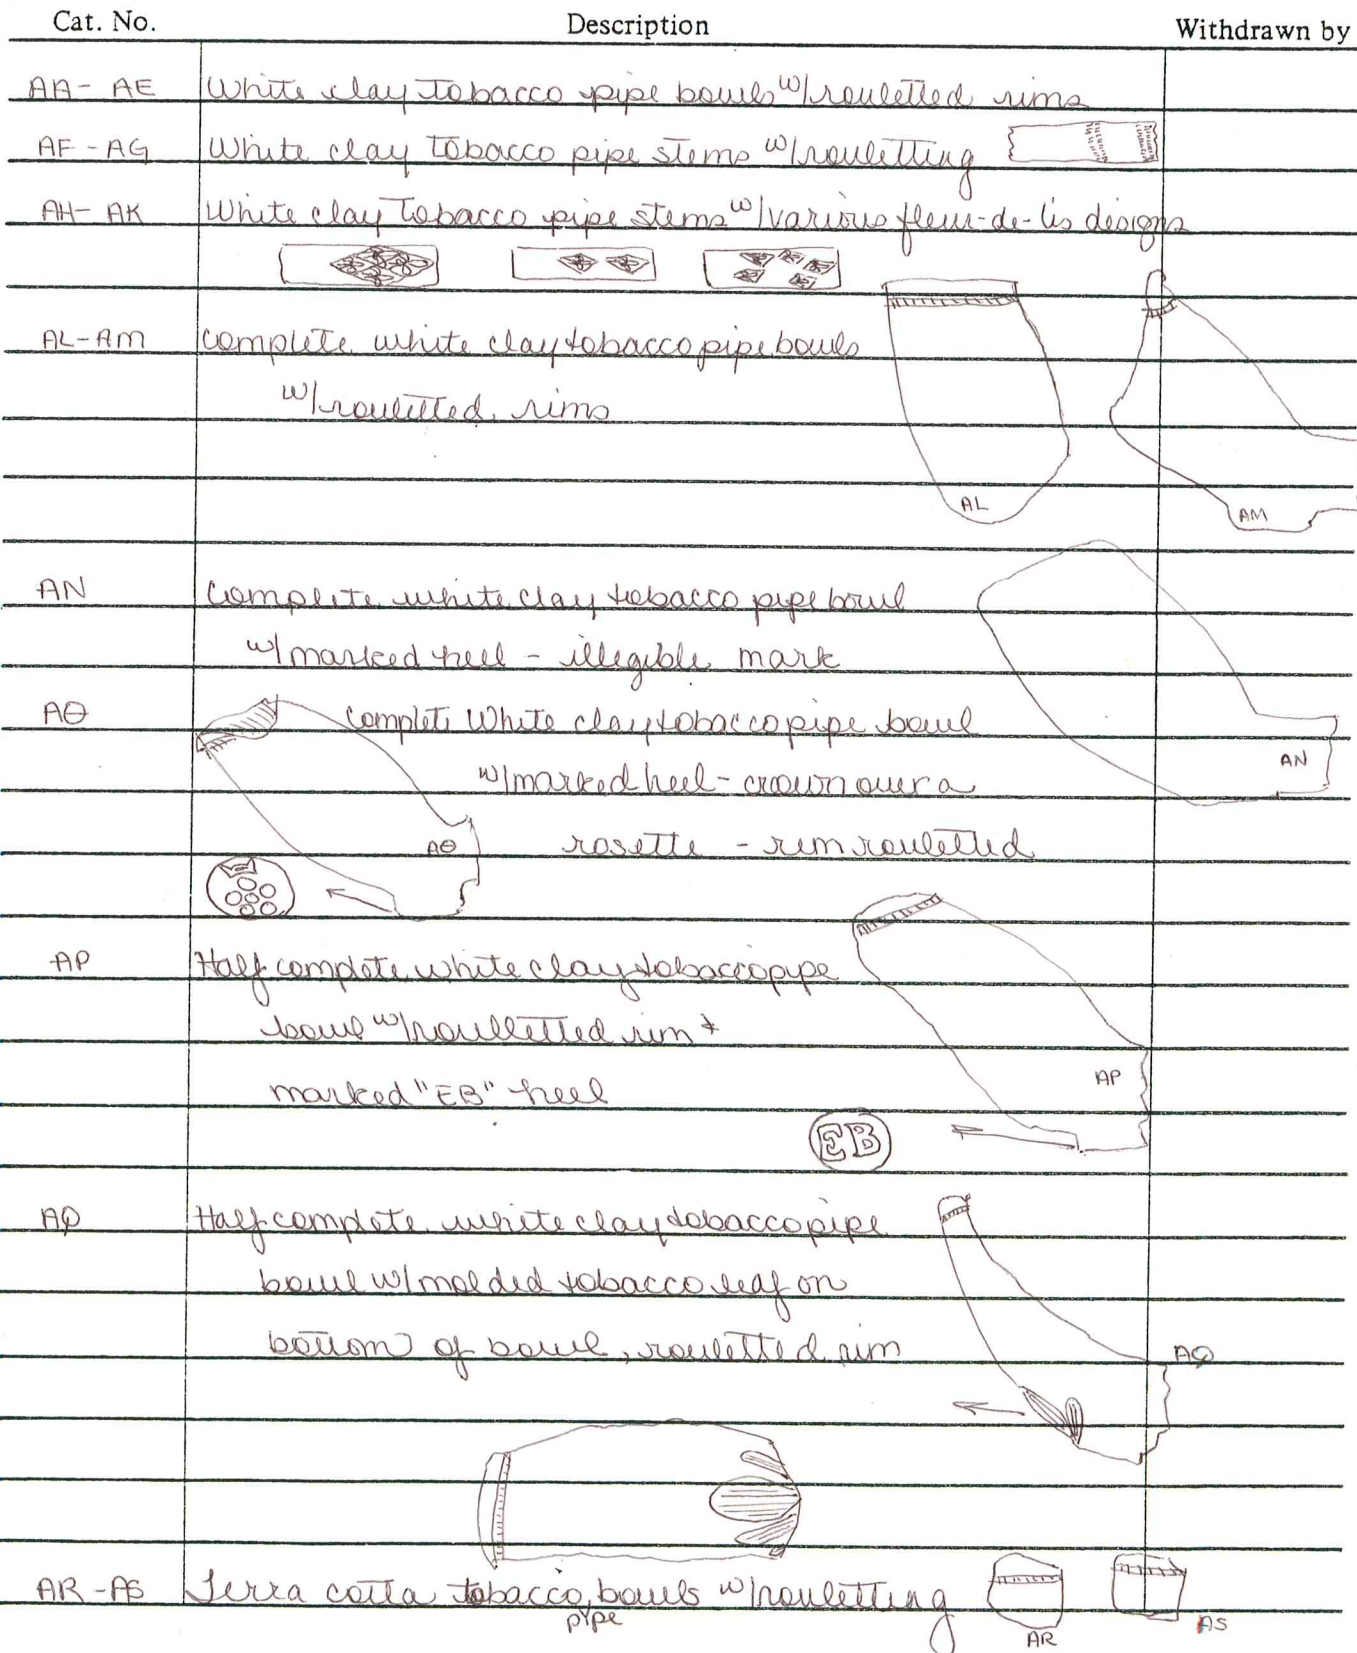 Cat. No. Description Withdrawn by
AA - AE White clay tobacco pipe bowls w/rouletted rims
AF - AG White clay tobacco pipe stems w/rouletting
AH - AK White clay tobacco pipe stems w/various fleur-de-lis designs
AL - AM complete white clay tobacco pipe bowls
w/rouletted rims
AL
AM
AN complete white clay tobacco pipe bowl
w/marked heel - illegible mark
AO complete white clay tobacco pipe bowl
AN
w/marked heel - crown over a
AO rosette - rim rouletted
AP Half complete white clay tobacco pipe
bowl w/roulletted rim +
AP
marked "EB" heel
EB
AQ Half complete white clay tobacco pipe
bowl w/molded tobacco leaf on
bottom of bowl, rouletted rim
AQ
AR - AS Terra cotta tobacco bowls w/rouletting
pipe
AR
AS